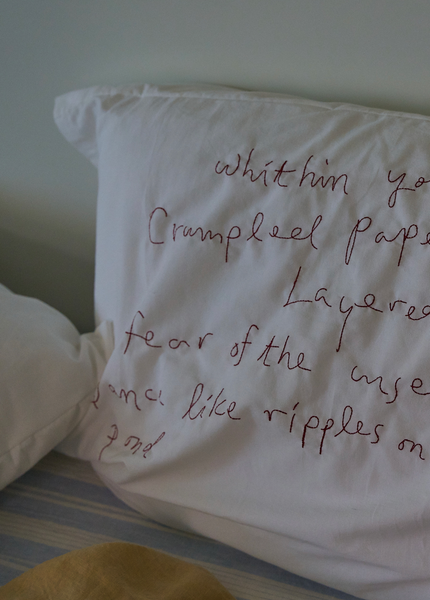 whithin yo
Crumpled pape
Layered
fear of the unse
like ripples on
pond